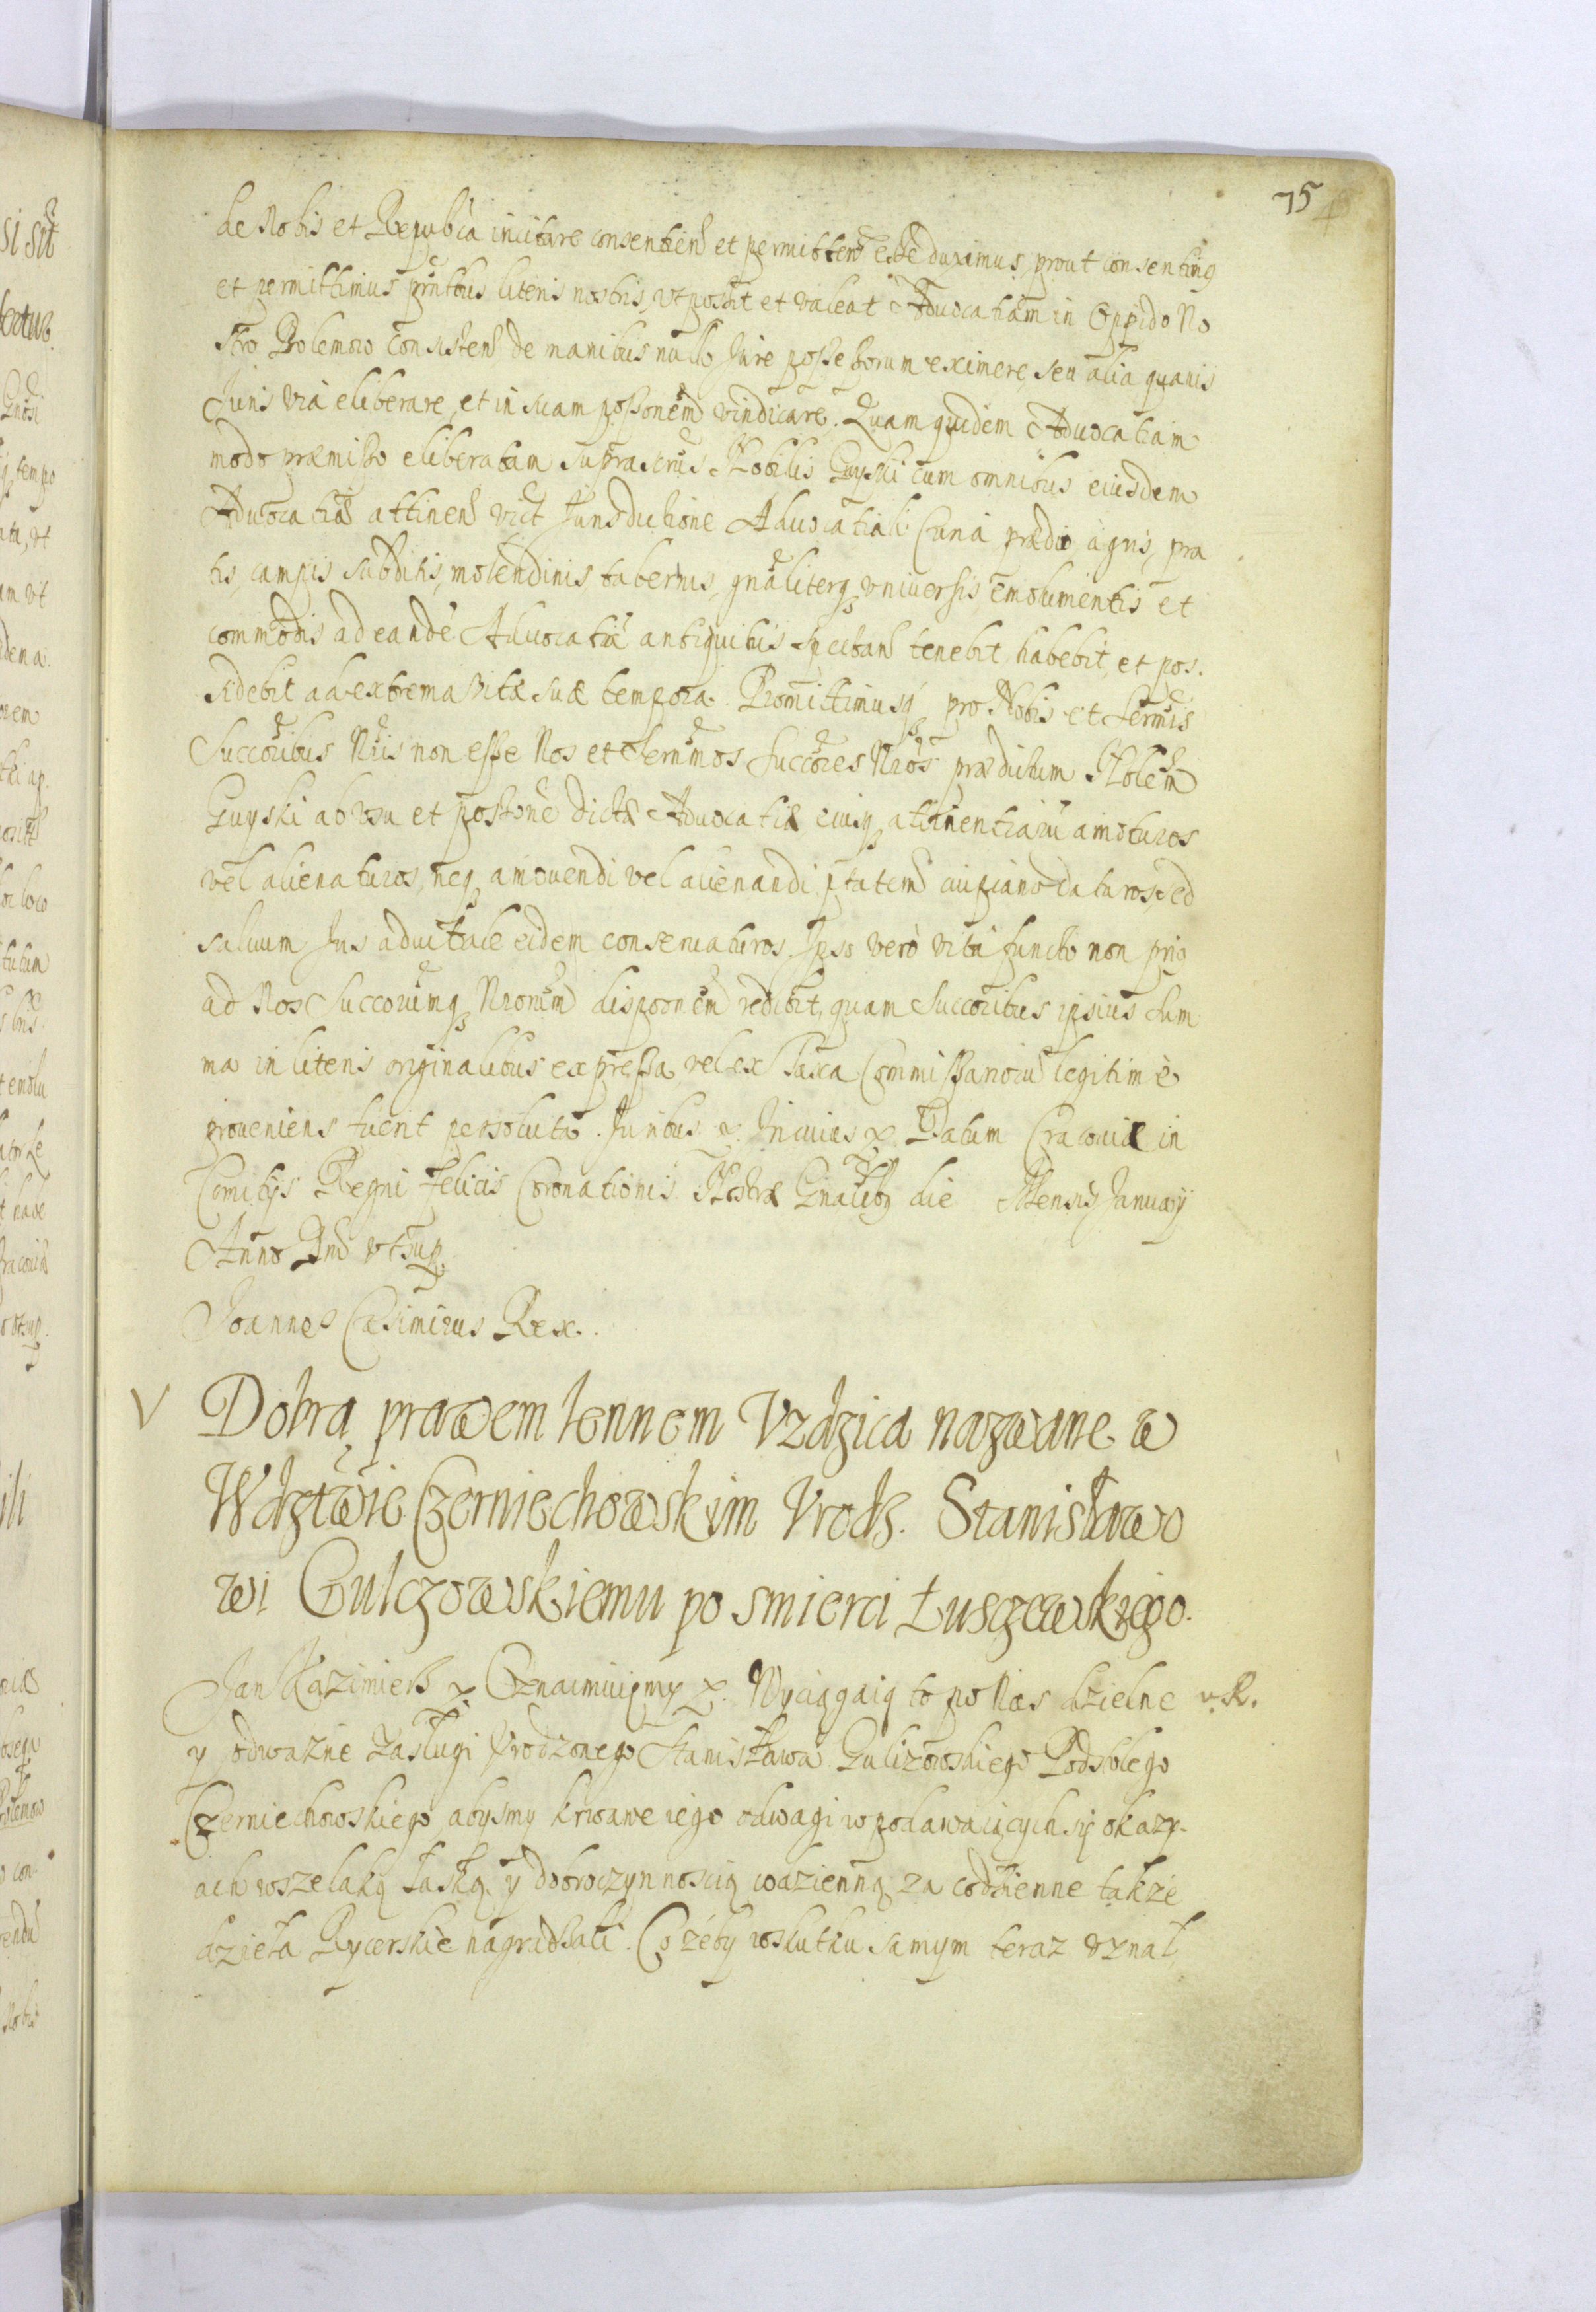 75
de Nobis et Republica incitare consentien et permitten esse duximus, prout consentimg
et permittimus pñtibus literis nostris, vt possit et valeat Advocatiam in Oppido No
stro Bolemow consisten de manibus nullo Jure possessorum eximere seu alia quavis
Juris via eliberare, et in suam possonem vindicare. Quam quidem Advocatiam
modo præmisso eliberatam suprascrus Nobilis Guyski cum omnibus eiusdem
Advocatiæ attinen vict Jurisdictione Advocatiali Curia prædio agris, pra
tis, campis subditis, molendinis tabernis, gnaliterq vniversis emolumentis et
commodis ad eande Advocatia antiquitus spectan tenebit habebit, et pos.
sidebit ad extrema vitæ suæ tempora. Promittimusq pro Nobis et Sermis
Succoribus Nris non esse Nos et Sermos Succores Nros prædictum Nobem
Guyski ab vsu et possone dictæ Advocatiæ eiusq attinentiaru amoturos
vel alienaturos, neq amovendi vel alienandi ptatem cuipiam daturos, sed
salvum Jus advitale eidem conservaturos. Ipso verò vita functo non prio
ad Nos Succorumq Nrorum dispoonem redibit, quam Succoribus ipsius Sum
ma in literis originalibus expressa, vel ex Taxa Commissarioru legitimè
proveniens fuerit persoluta. Juribus &. In cuius &. Datum Cracoviæ in
Comitijs Regni felicis Coronationis Nostræ Gnalibq die Mensis Januarij
Anno Dni vt sup.
Joannes Casimirus Rex.
V Dobra prawem lennem Vzdzica nazwane w
Wdztwie Czerniechowskim Vrodz. Stanisławo
wi Gulczowskiemu po smierci Łusczewskiego.
Jan Kazimierz &. Oznaimuiemy &. Wyciągaią to po Nas dzielne v. R.
y odważne zasługi Vrodzonego Stanisława Gulczowskiego Podstolego
Czerniechowskiego, abysmy krwawe iego odwagi w podawaiących się okazy-
ach wszelaką łaską y dobroczynnoscią wdzienną za codzienne takze
dzieła Rycerskie nagradzali. Co żeby w skutku samym teraz vznał